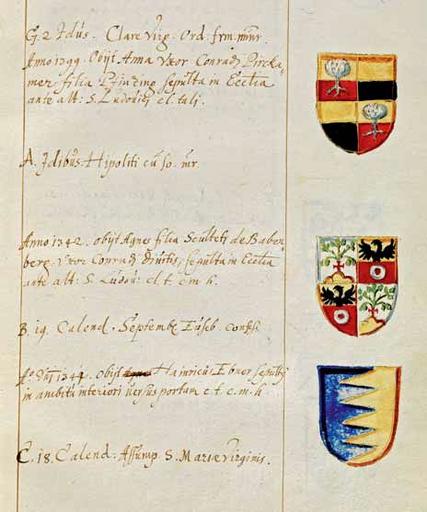 G. 2 Idus. Clare virg. Ord. frm. mnr.
Anno 1299. Obijt Anna Vxor Conradj Pircka,
mer filia Pfinzing sepulta in Ecclia
ante alt: S. Ludovicj cl. talj.
A. Idibus. Hipoliti cu so. mr.
Anno 1342. obijt Agnes filia Sculteti de Baben
berg. Vxor Conradj sepulta in Ecclia
ante alt: S. Ludoui: c. t. c. m. h.
B. 19. Calend. Septembr. Euseb. Confes.
1344. Obijt Hainricus Ebner sepult9
in ambitu interiori versus portam c. t. c. m. h.
C. 18. Calend. Assump. S. Mariæ Virginis.